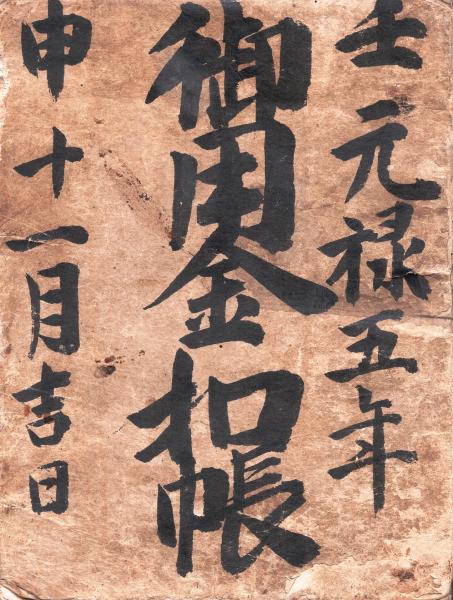 壬元禄五年
御用金扣帳
申十一月吉日